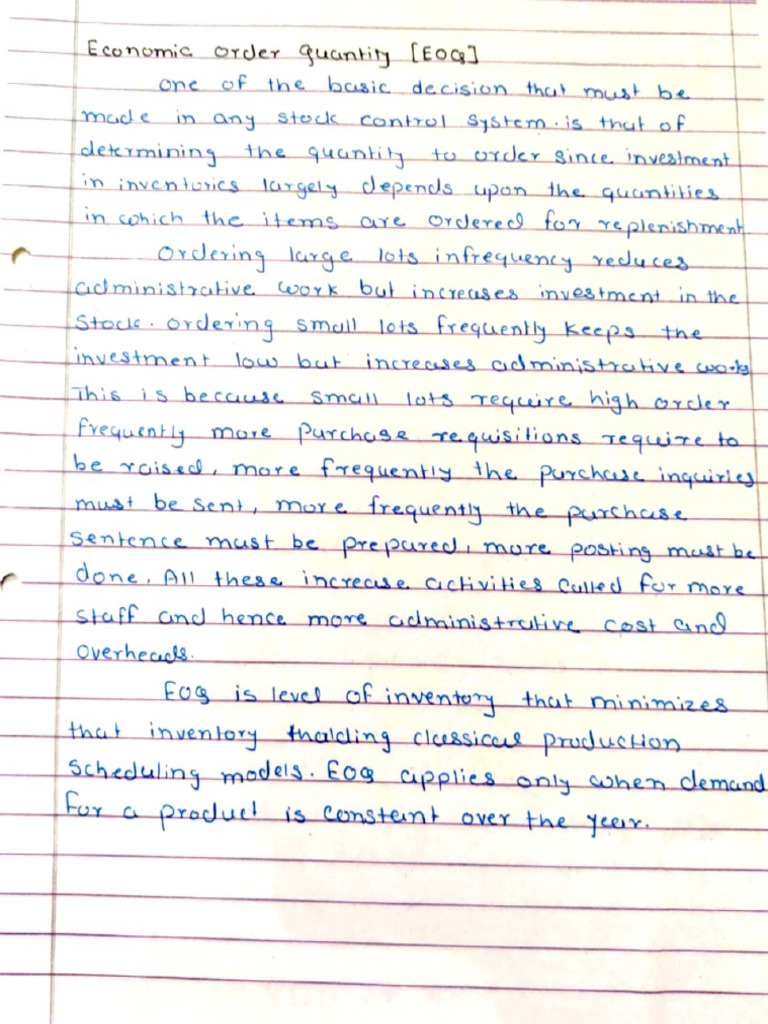 Economic order quantity [EOQ]
one of the basic decision that must be
made in any stock control system. is that of
determining the quantity to order since investment
in inventories largely depends upon the quantities
in which the items are ordered for replenishment
Ordering large lots infrequency reduces
administrative work but increases investment in the
Stock. ordering small lots frequently keeps the
investment low but increases administrative work
This is because small lots require high order
frequently more purchase requisitions require to
be raised, more frequently the purchase inquiries
must be sent, more frequently the purchase
sentence must be prepared, more posting must be
done. All these increase activities called for more
staff and hence more administrative cost and
overheads.
EOQ is level of inventory that minimizes
that inventory thalding classical production
scheduling models. EOQ applies only when demand
for a product is constant over the year.